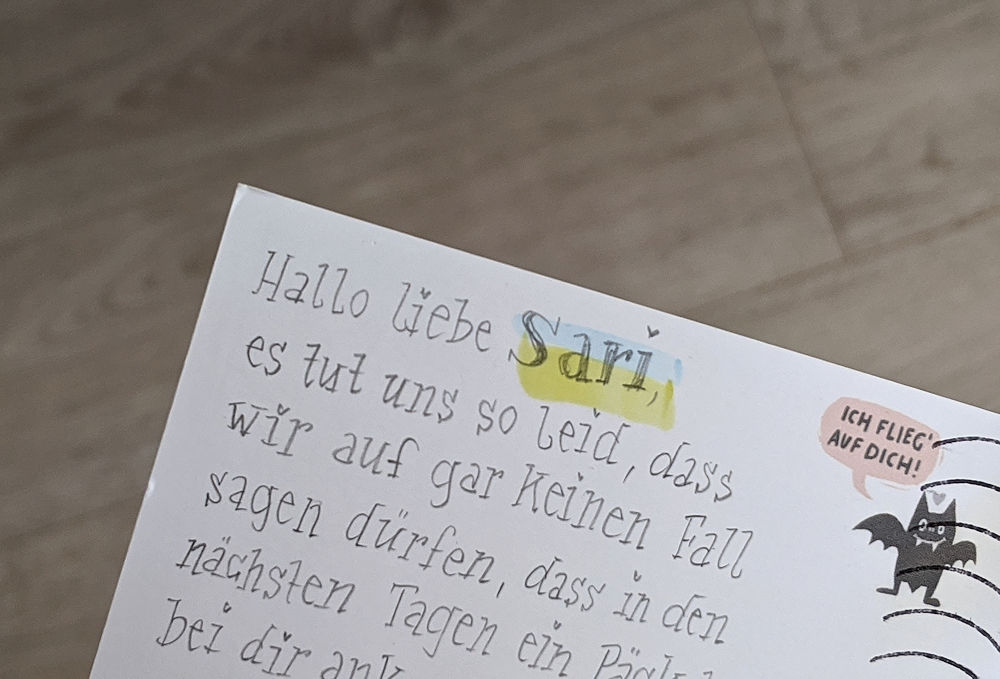 Hallo liebe Sari,
es tut uns so leid, dass
wir auf gar keinen Fall
sagen dürfen, dass in den
nächsten Tagen ein
bei dir
ICH FLIEG'
AUF DICH!